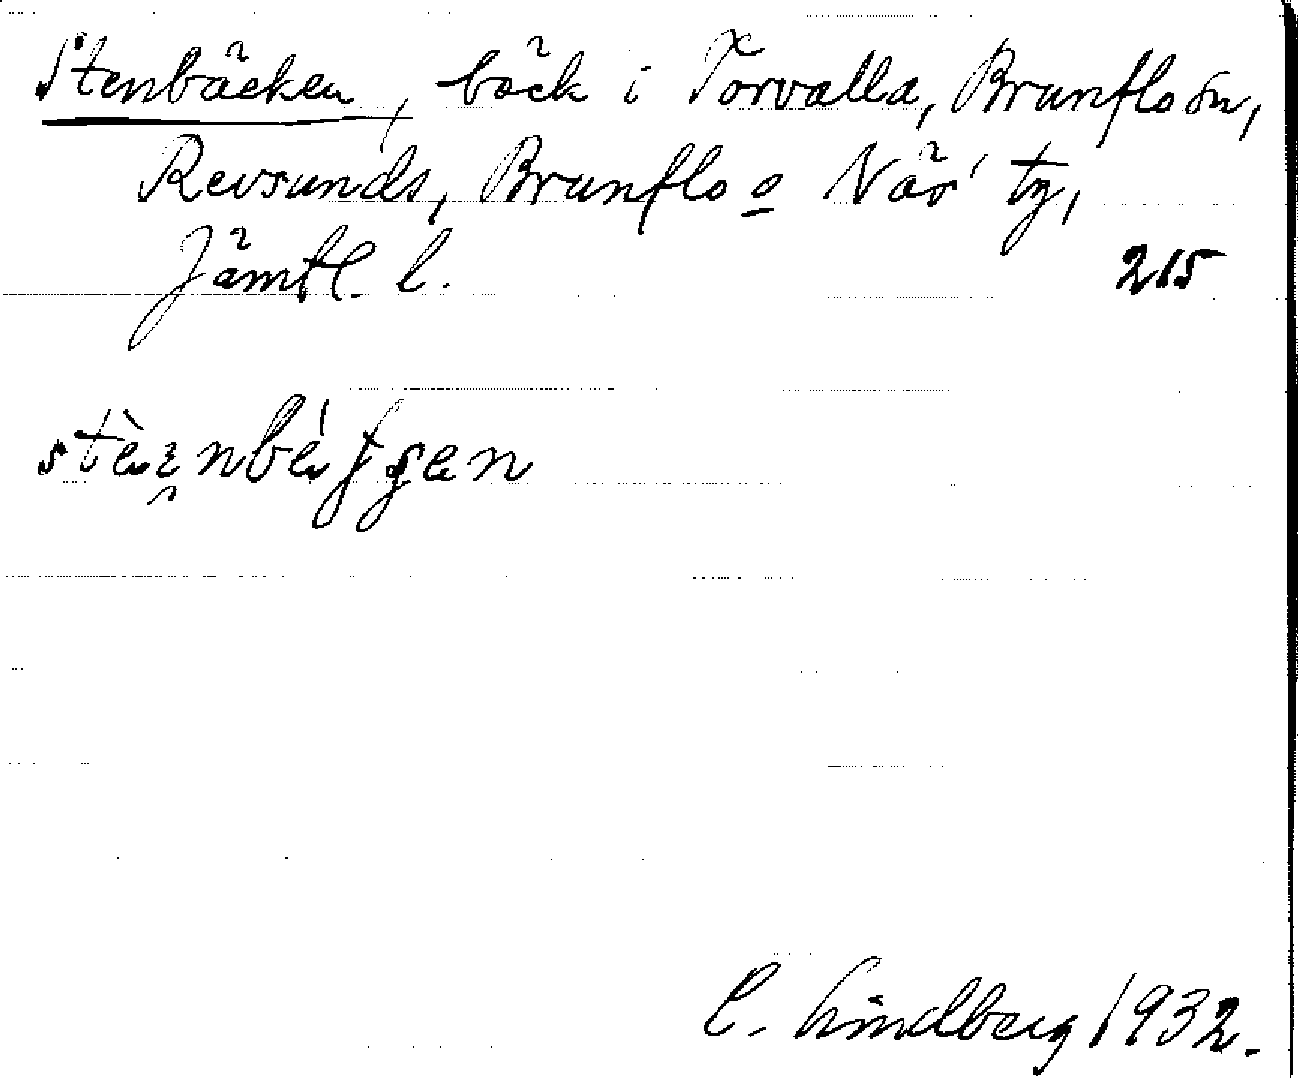 Stenbäcken, bäck i Torvalla, Brunflo sn,
Revsunds, Brunflo o Näs' tg,
Jämtl. l.
215
C. Lindberg 1932.